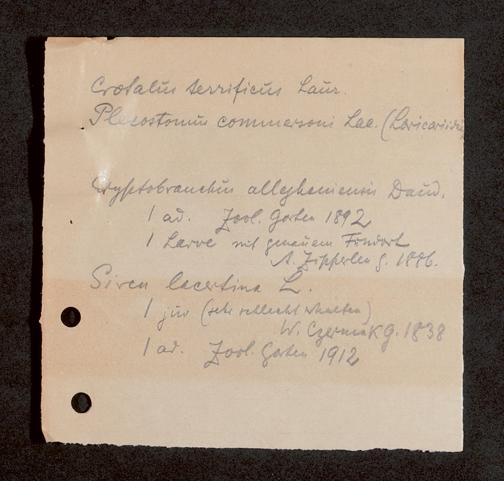 Crotalus terrificus Laur.
Plecostomus commersoni Lac. (Loricariidae
Cryptobranchus alleghaniensis Daud.
1 ad. Zool. Garten 1892
1 Larve mit genauem Fundort
A. Zipperlen g. 1886.
Siren lacertina L.
1 juv (sehr schlecht erhalten)
W. Czermak g. 1838
1 ad. Zool. Garten 1912